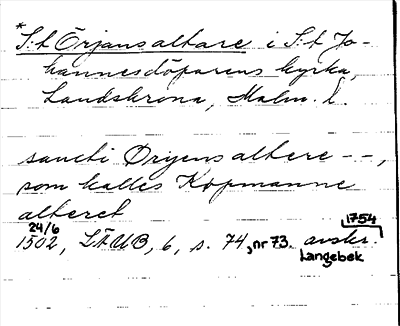 * S:t Örjans altare i S:t Jo-
hannesdöparens kyrka,
Landskrona, Malm. l.
sancti Ørjens altere - -,
som kalles Kopmanne
alteret
24/6 1754
1502, LÄUB, 6, s. 74, nr 73. avskr.
Langebek